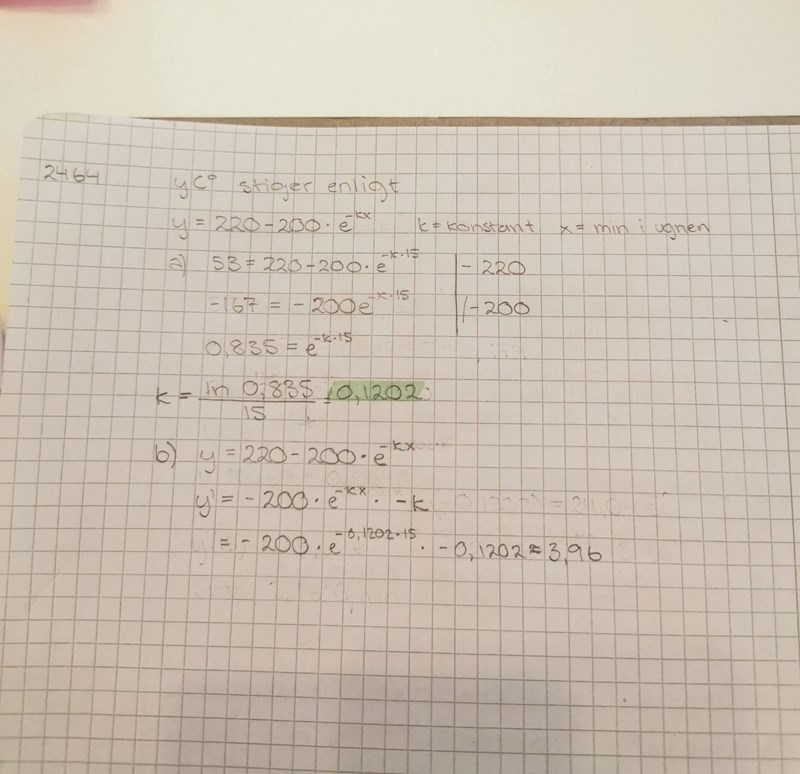 2464 y C° stiger enligt
y = 220 - 200 · e^-kx k = konstant x = min i ugnen
a) 53 = 220 - 200 · e^-k·15 | - 220
-167 = -200e^-k·15 | /-200
0,835 = e^-k·15
k = ln 0,835 / 15 = 0,1202
b) y = 220 - 200 · e^-kx
y' = -200 · e^-kx · -k
= -200 · e^-0,1202·15 · -0,1202 ≈ 3,96